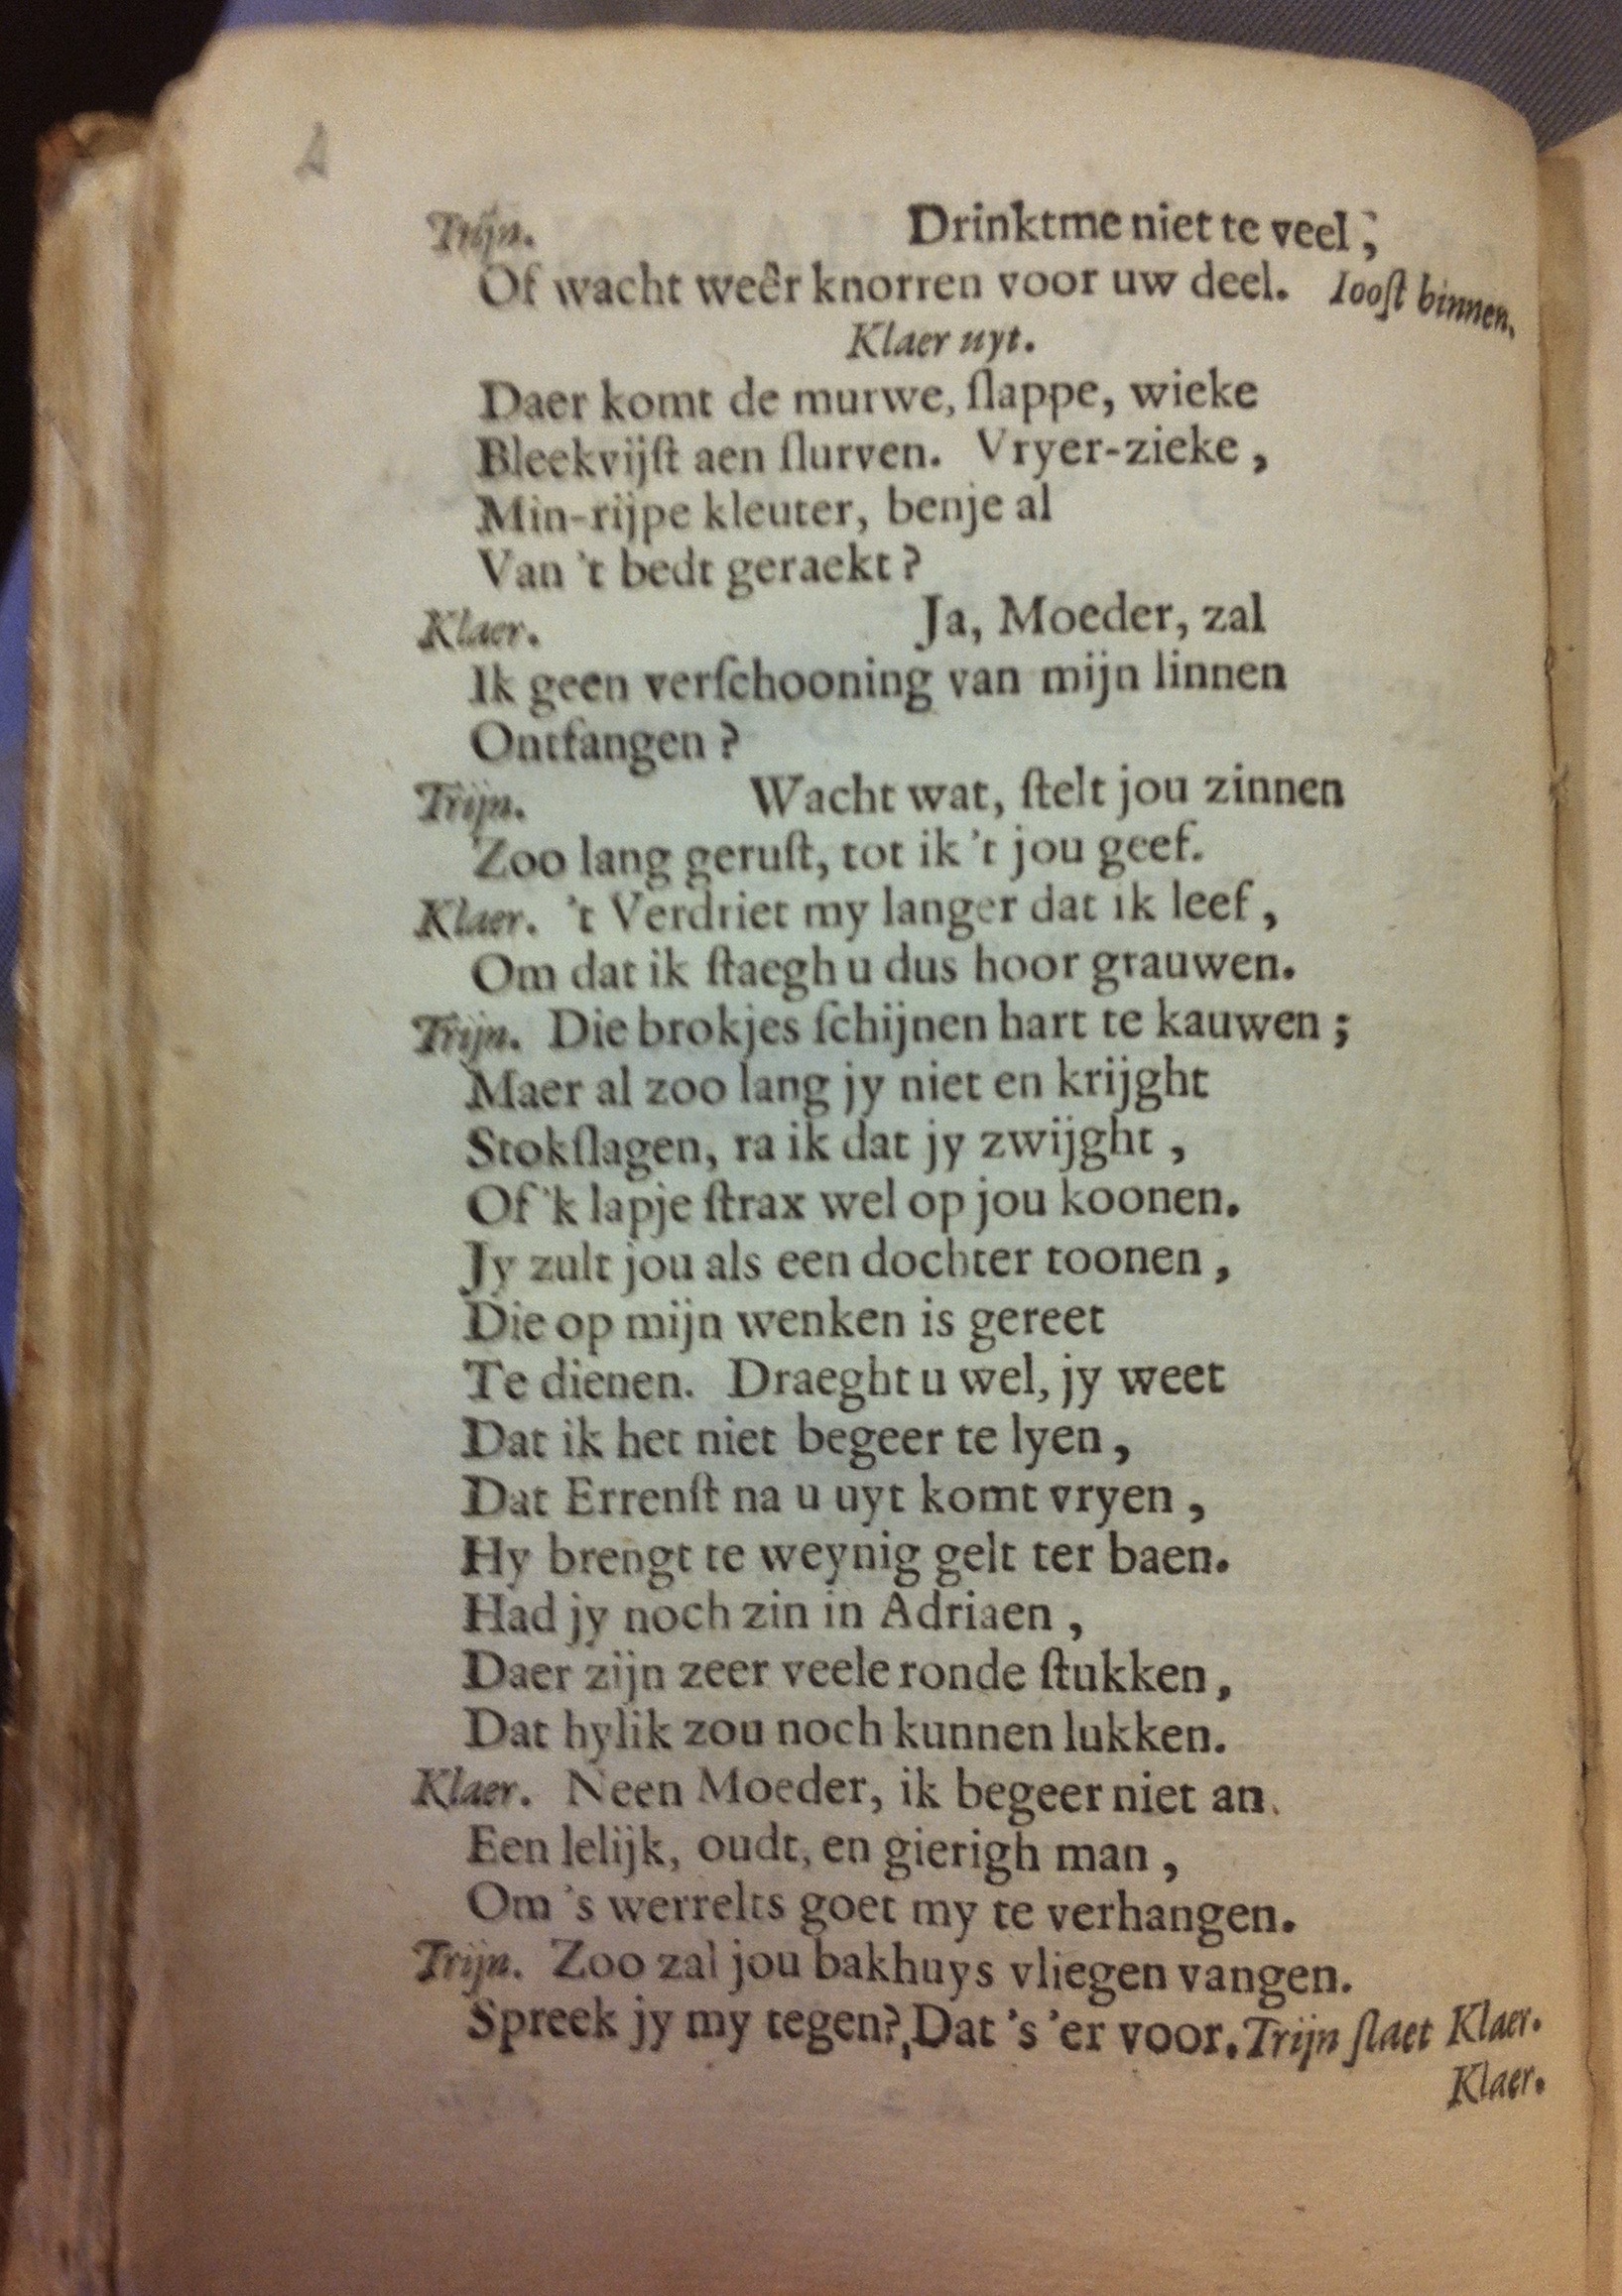 Trijn. Drinktme niet te veel;
Of wacht weêr knorren voor uw deel. Iooſt binnen.
Klaer uyt.
Daer komt de murwe, ſlappe, wieke
Bleekvijſt aen ſlurven. Vryer-zieke,
Min-rijpe kleuter, benje al
Van 't bedt geraekt?
Klaer. Ja, Moeder, zal
Ik geen verſchooning van mijn linnen
Ontfangen?
Trijn. Wacht wat, ſtelt jou zinnen
Zoo lang geruſt, tot ik 't jou geef.
Klaer. 't Verdriet my langer dat ik leef,
Om dat ik ſtaegh u dus hoor grauwen.
Trijn. Die brokjes ſchijnen hart te kauwen;
Maer al zoo lang jy niet en krijght
Stokſlagen, ra ik dat jy zwijght,
Of 'k lapje ſtrax wel op jou koonen.
Jy zult jou als een dochter toonen,
Die op mijn wenken is gereet
Te dienen. Draeght u wel, jy weet
Dat ik het niet begeer te lyen,
Dat Errenſt na u uyt komt vryen,
Hy brengt te weynig gelt ter baen.
Had jy noch zin in Adriaen,
Daer zijn zeer veele ronde ſtukken,
Dat hylik zou noch kunnen lukken.
Klaer. Neen Moeder, ik begeer niet an
Een lelijk, oudt, en gierigh man,
Om 's werrelts goet my te verhangen.
Trijn. Zoo zal jou bakhuys vliegen vangen.
Spreek jy my tegen? Dat 's 'er voor. Trijn ſlaet Klaer.
Klaer.